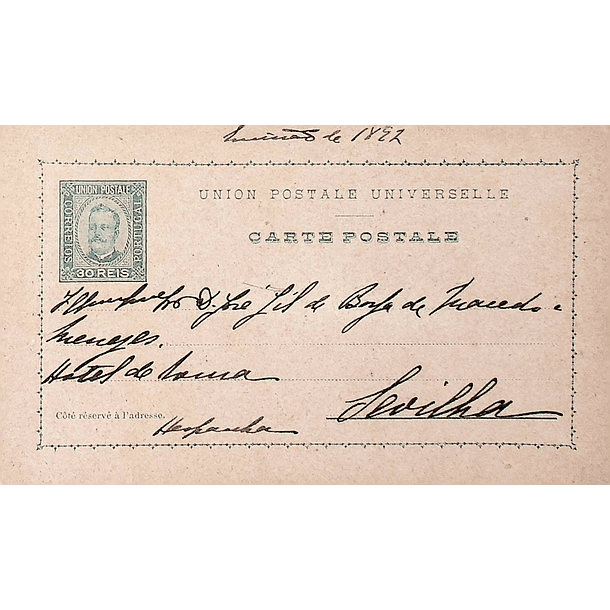 de 1892
UNION POSTALE UNIVERSELLE
CARTE POSTALE
UNION POSTALE
CORREIOS
PORTUGAL
30 REIS
D. José Gil de Borja de Macedo e
Menezes.
Hotel de Roma
Sevilha
Côté réservé à l'adresse.
Hespanha